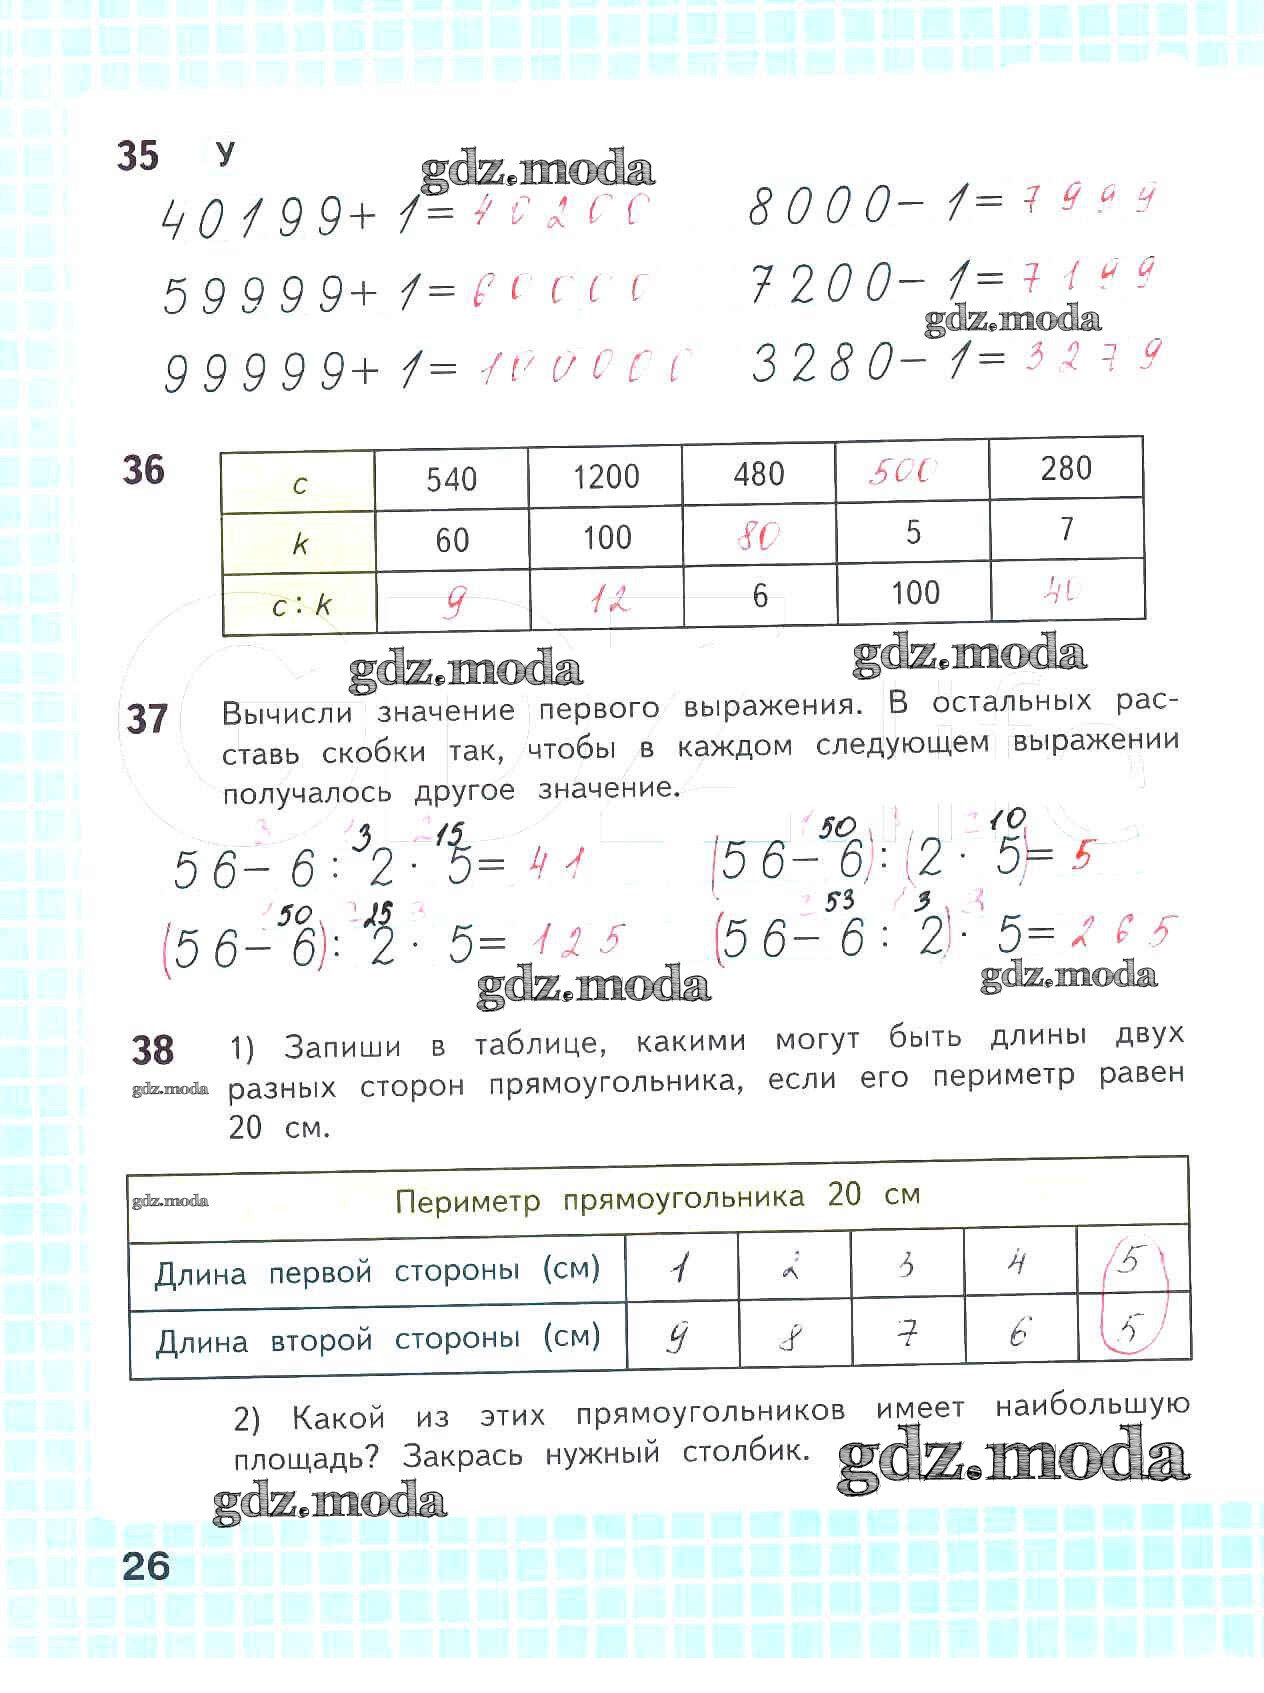 35 У
gdz.moda
40199+ 1= 40200 8000- 1= 7999
59999+ 1= 60000 7200- 1= 7199
gdz.moda
99999+ 1= 100000 3280- 1= 3279
36
c 540 1200 480 500 280
k 60 100 80 5 7
c : k 9 12 6 100 40
gdz.moda gdz.moda
37 Вычисли значение первого выражения. В остальных рас-
ставь скобки так, чтобы в каждом следующем выражении
получалось другое значение.
3 15 50 10
56- 6 : 2 · 5= 41 (56- 6) : (2 · 5)= 5
50 25 53 3
(56- 6) : 2 · 5= 125 (56- 6 : 2) · 5= 265
gdz.moda gdz.moda
38 1) Запиши в таблице, какими могут быть длины двух
gdz.moda разных сторон прямоугольника, если его периметр равен
20 см.
gdz.moda Периметр прямоугольника 20 см
Длина первой стороны (см) 1 2 3 4 5
Длина второй стороны (см) 9 8 7 6 5
2) Какой из этих прямоугольников имеет наибольшую
площадь? Закрась нужный столбик. gdz.moda
gdz.moda
26